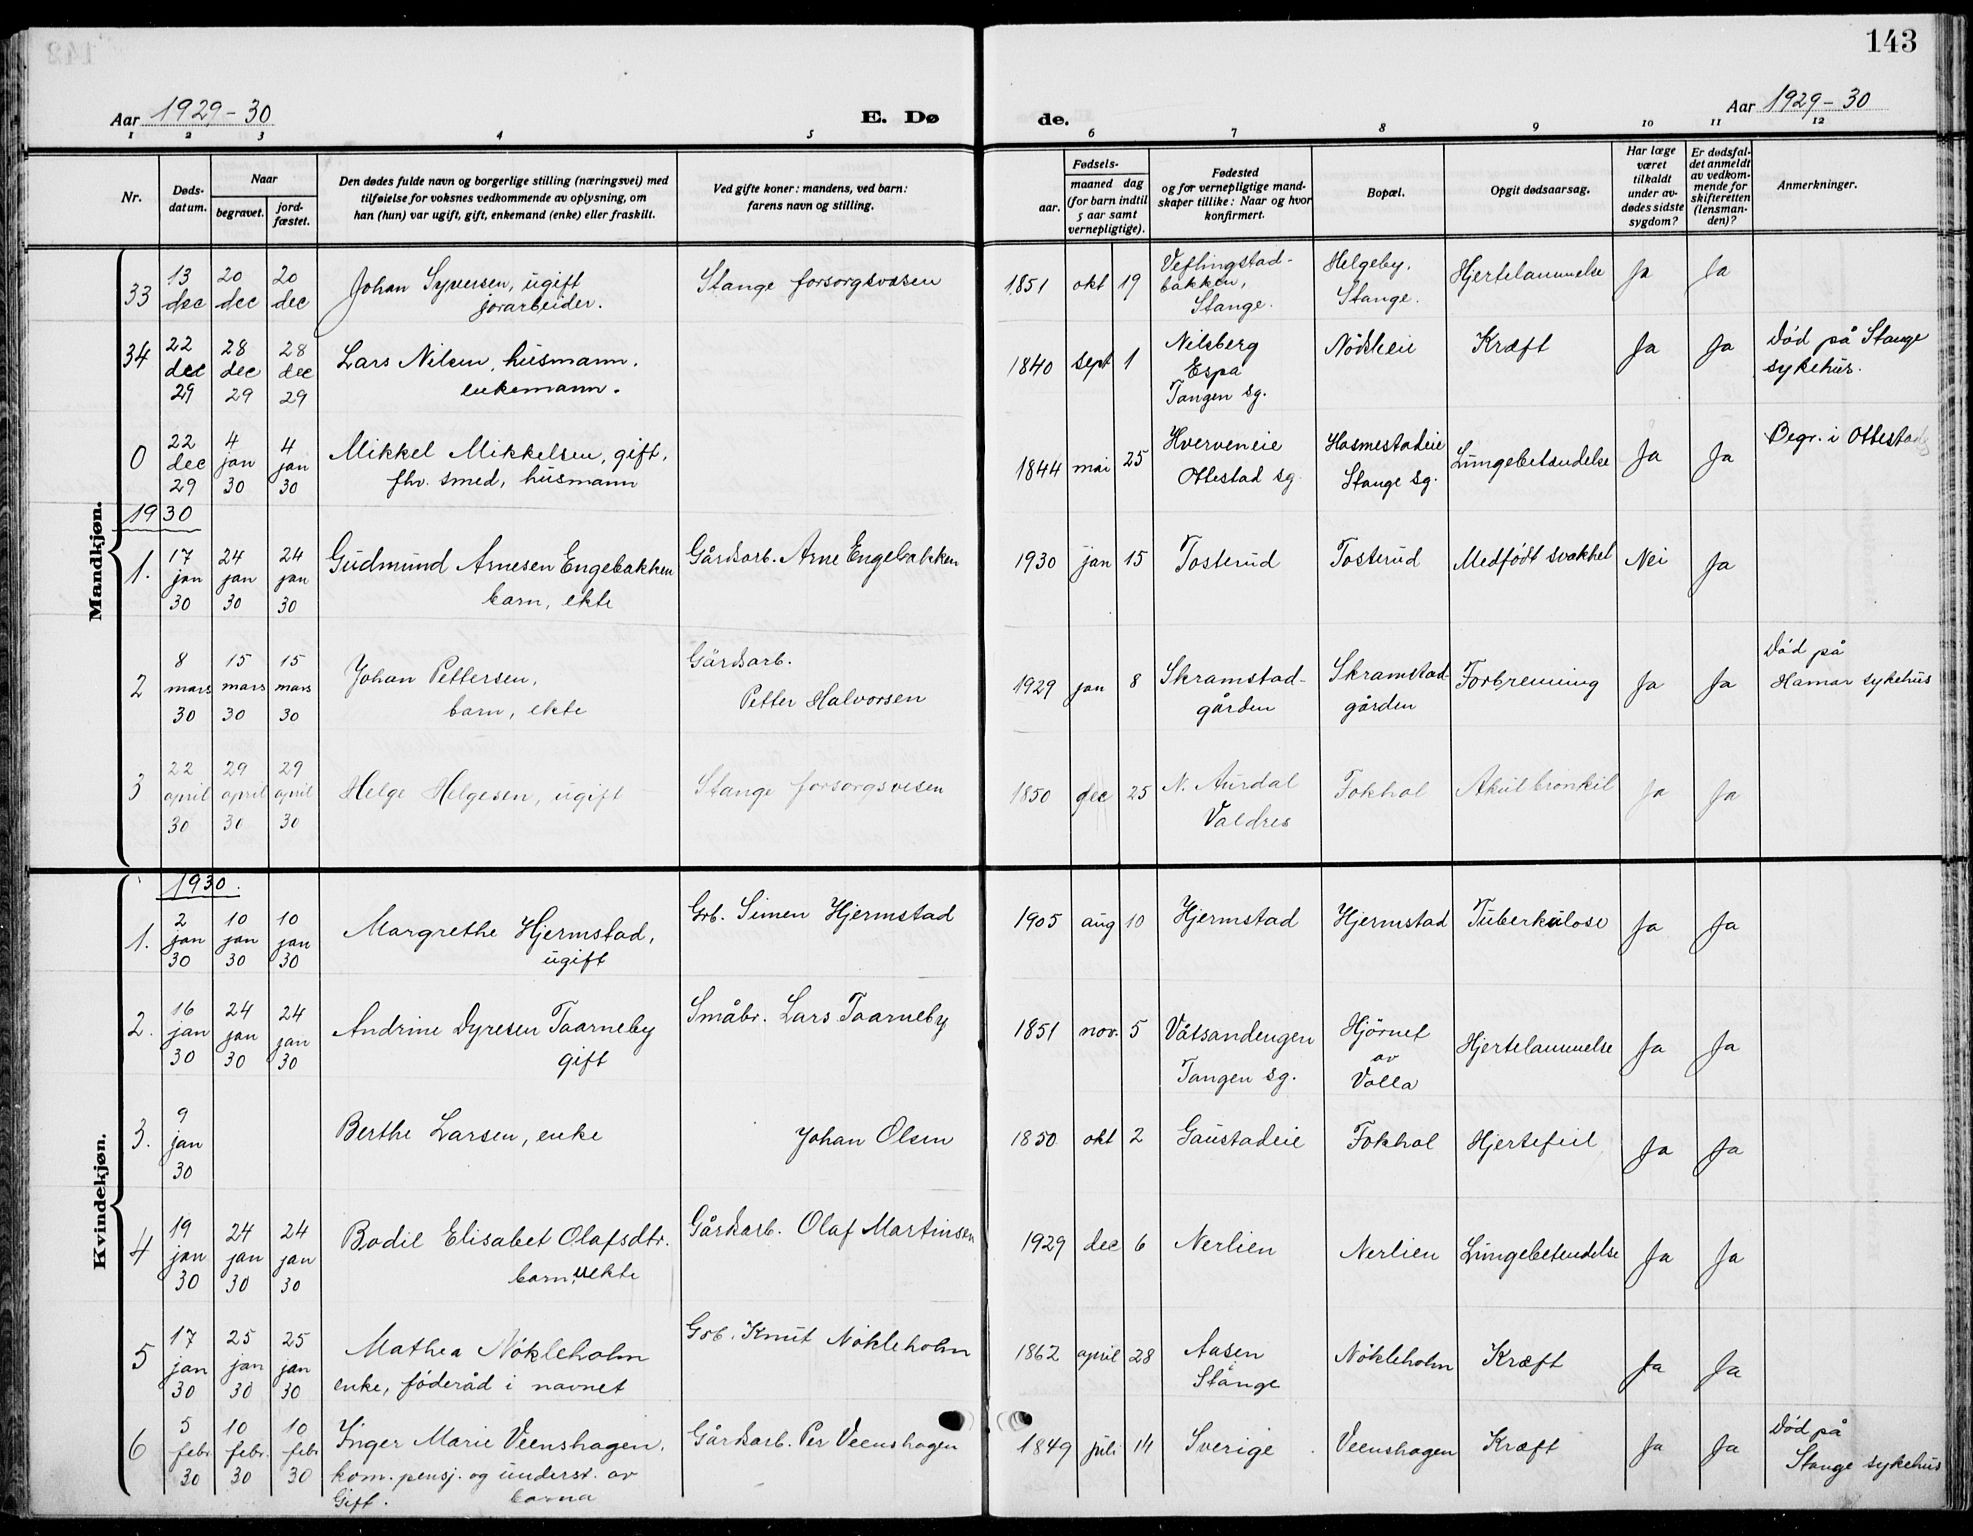 143
Aar 1929-30
E. Dø
de.
Aar 1929-30
1 2 3 4 5 6 7 8 9 10 11 12
Nr.
Døds-
datum.
Naar
begravet.
jord-
fæstet.
Den dødes fulde navn og borgerlige stilling (næringsvei) med
tilføielse for voksnes vedkommende av oplysning, om
han (hun) var ugift, gift, enkemand (enke) eller fraskilt.
Ved gifte koner: mandens, ved barn:
farens navn og stilling.
Fødsels-
aar.
maaned dag
(for barn indtil
5 aar samt
vernepligtige).
Fødested
og for vernepligtige mand-
skaper tillike: Naar og hvor
konfirmert.
Bopæl.
Opgit dødsaarsag.
Har læge
været
tilkaldt
under av-
dødes sidste
sygdom?
Er dødsfal-
det anmeldt
av vedkom-
mende for
skifteretten
(lensman-
den)?
Anmerkninger.
Mandkjøn.
33
13
dec
20
dec
20
dec
Johan Syversen, ugift
jorarbeider.
Stange forsorgsvæsen
1851 okt 19
Veflingstad-
bakken,
Stange.
Helgeby.
Stange.
Hjertelammelse
Ja
Ja
34
22
dec
29
28
dec
29
28
dec
29
Lars Nilsen, husmann.
enkemann.
1840 sept 1
Nilsberg
Espa
Tangen sg.
Nökleei
Kræft
Ja
Ja
Död på Stange
sykehus.
0
22
dec
29
4
jan
30
4
jan
30
Mikkel Mikkelsen, gift,
fhv. smed, husmann
1844 mai 25
Hverveneie
Ottestad sg.
Hosmestadeie
Stange sg.
Lungebetendelse
Ja
Ja
Begr. i Ottestad
1930
1.
17
jan
30
24
jan
30
24
jan
30
Gudmund Arnesen Engebakken
barn, ekte
Gårdsarb. Arne Engebakken
1930 jan 15
Tosterud
Tosterud
Medfödt svakhet
Nei
Ja
2
8
mars
30
15
mars
30
15
mars
30
Johan Pettersen,
barn, ekte
Gårdsarb.
Petter Halvorsen
1929 jan 8
Skramstad-
gården
Skramstad-
gården
Forbrenning
Ja
Ja
Död på
Hamar sykehus
3
22
april
30
29
april
30
29
april
30
Helge Helgesen, ugift
Stange forsorgsvesen
1850 dec 25
N. Aurdal
Valdres
Fokhol
Akut bronkit
Ja
Ja
Kvindekjøn.
1930.
1.
2
jan
30
10
jan
30
10
jan
30
Margrethe Hjermstad,
ugift
Grb. Simen Hjermstad
1905 aug 10
Hjermstad
Hjermstad
Tuberkulose
Ja
Ja
2.
16
jan
30
24
jan
30
24
jan
30
Andrine Dyresen Taarneby
gift
Småbr. Lars Taarneby
1851 nov. 5
Våtsandengen
Tangen sg.
Hjörnet
av
Volla
Hjertelammelse
Ja
Ja
3.
9
jan
30
Berthe Larsen, enke
Johan Olsen
1850 okt 2
Gaustadeie
Fokhol
Hjertefeil
Ja
Ja
4
19
jan
30
24
jan
30
24
jan
30
Bodil Elisabet Olafsdtr.
barn, uekte
Gårdsarb. Olaf Martinsen
1929 dec 6
Nerlien
Nerlien
Lungebetendelse
Ja
Ja
5
17
jan
30
25
jan
30
25
jan
30
Mathea Nökleholm
enke, föderåd i navnet
Grb. Knut Nökleholm
1862 april 28
Aasen
Stange
Nökleholm
Kræft
Ja
Ja
6
5
febr
30
10
febr.
30
10
febr
30
Inger Marie Veenshagen,
kom. pensj. og underst. av
Gift. barna
Gårdsarb. Per Veenshagen
1849 juli 14
Sverige
Veenshagen
Kræft
Ja
Ja
Död på
Stange sykehus